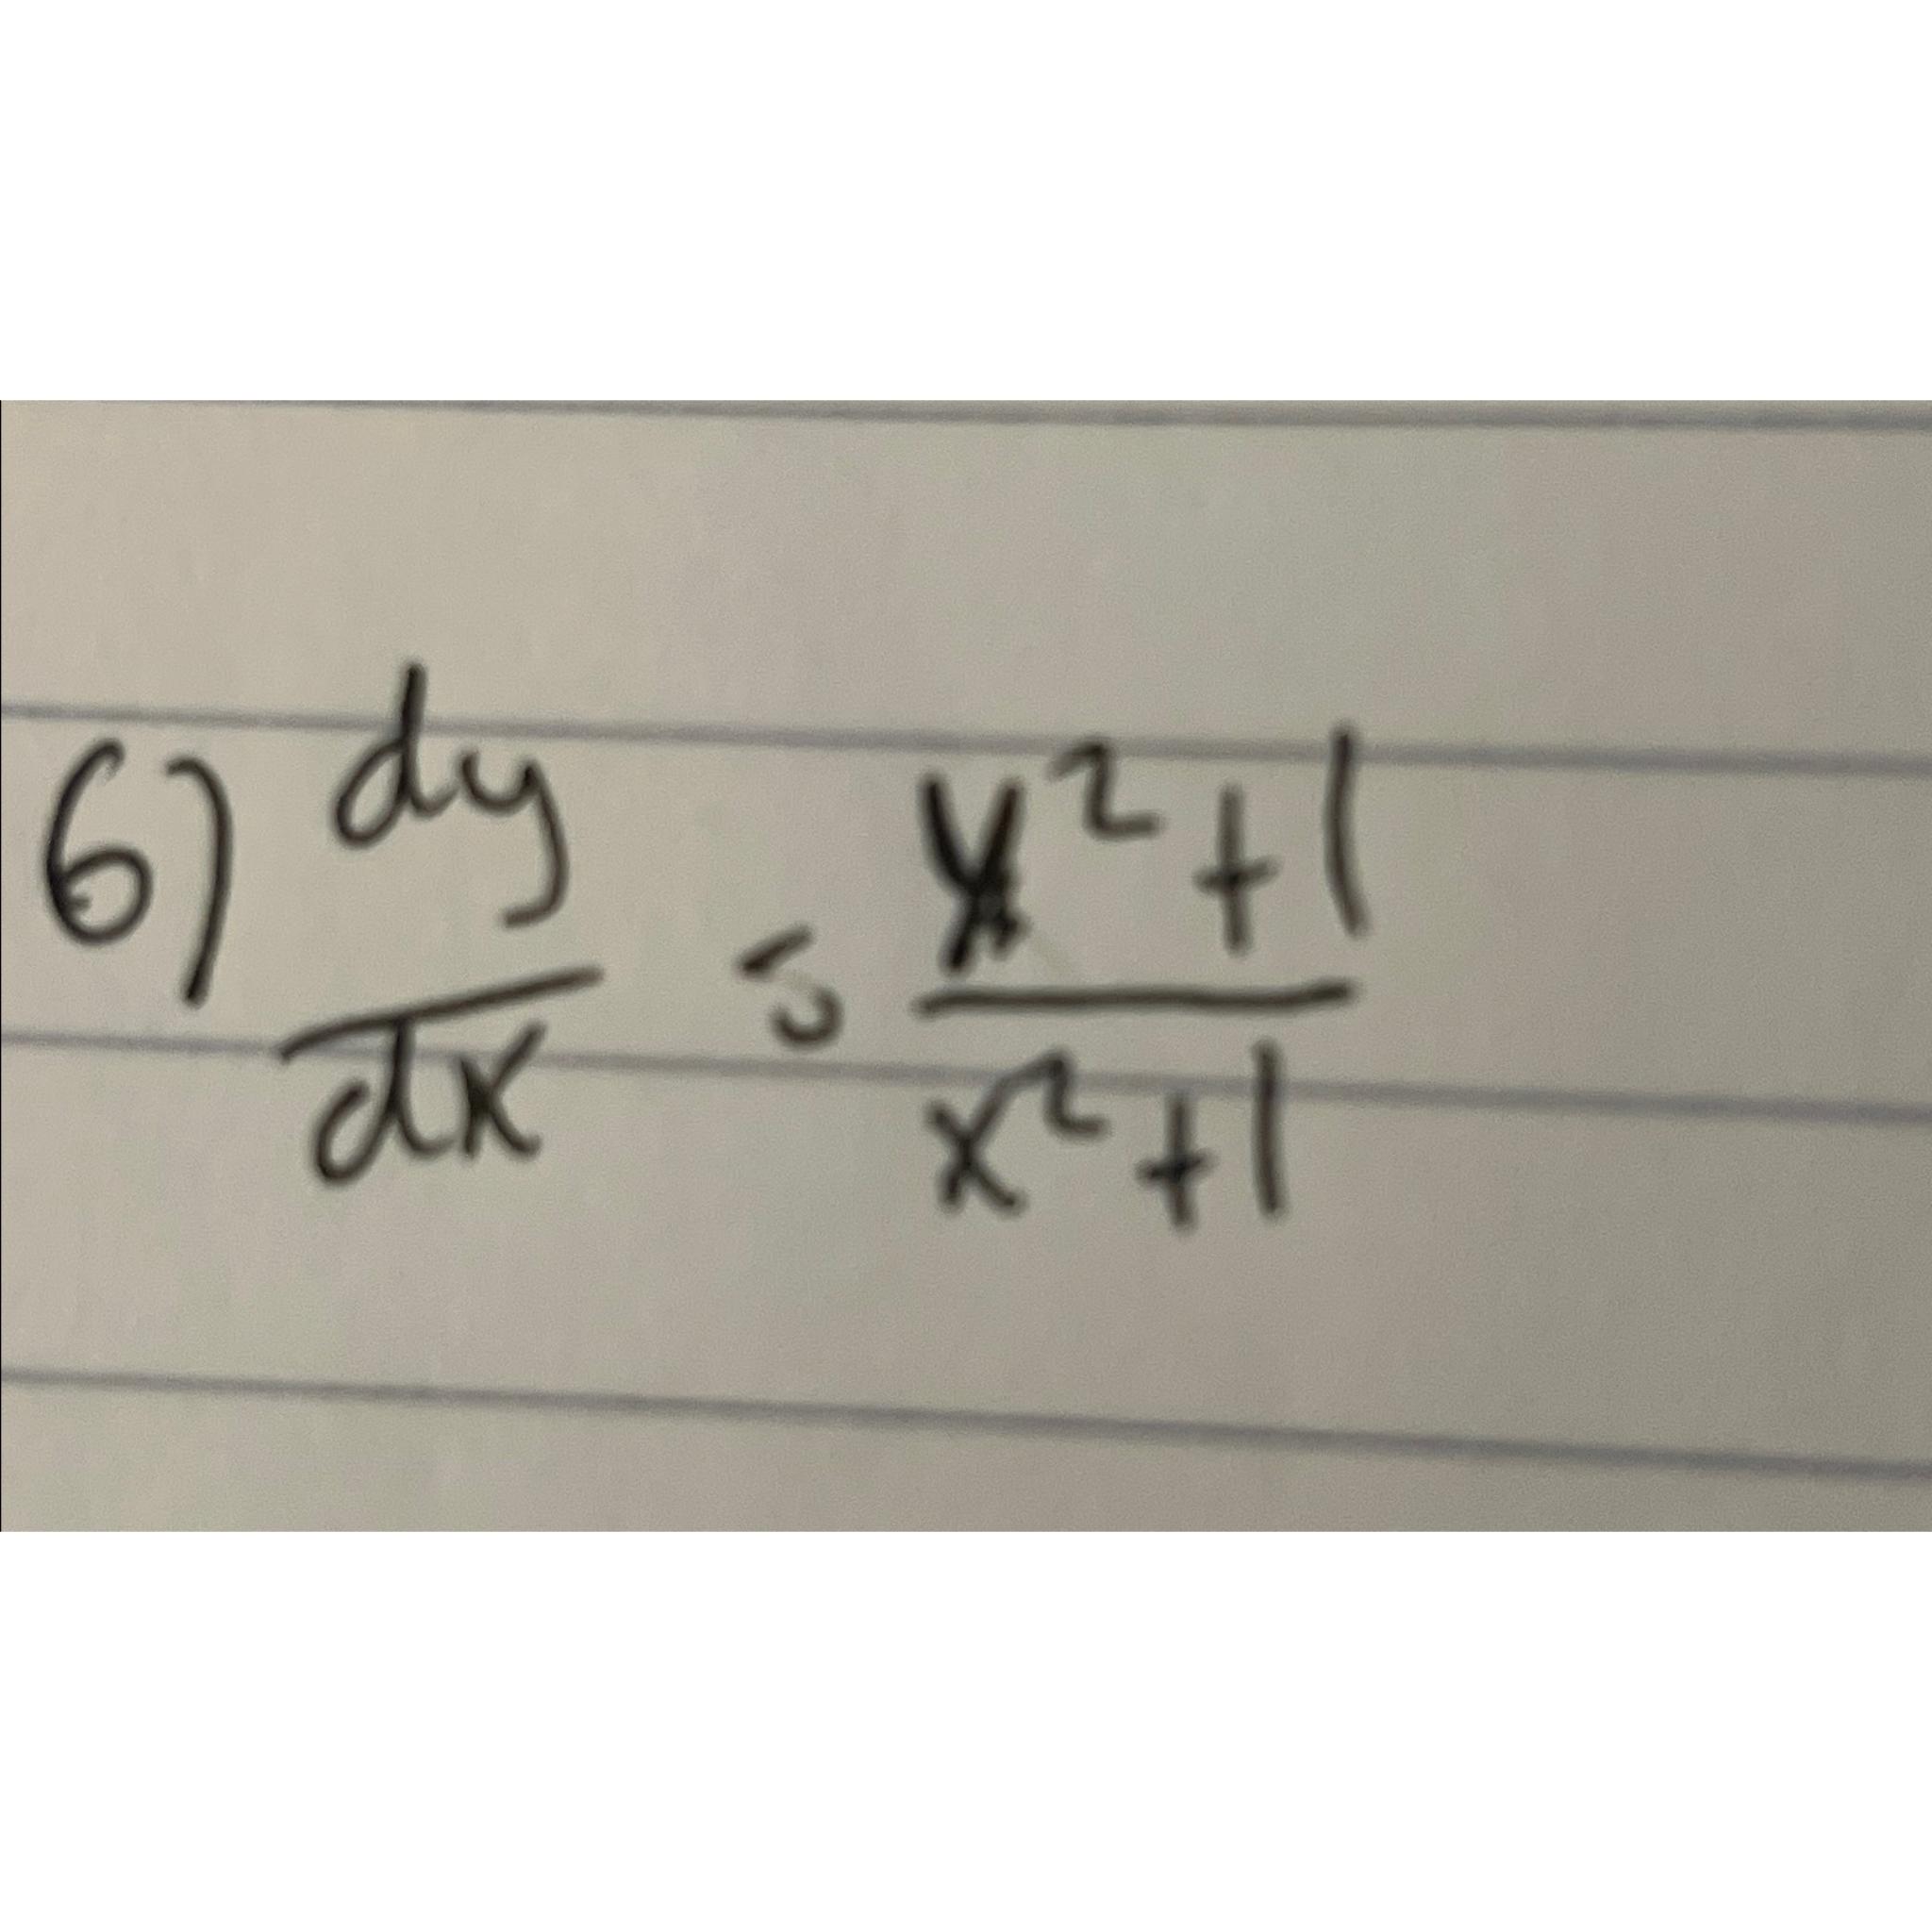 6) dy/dx = y²+1/x²+1